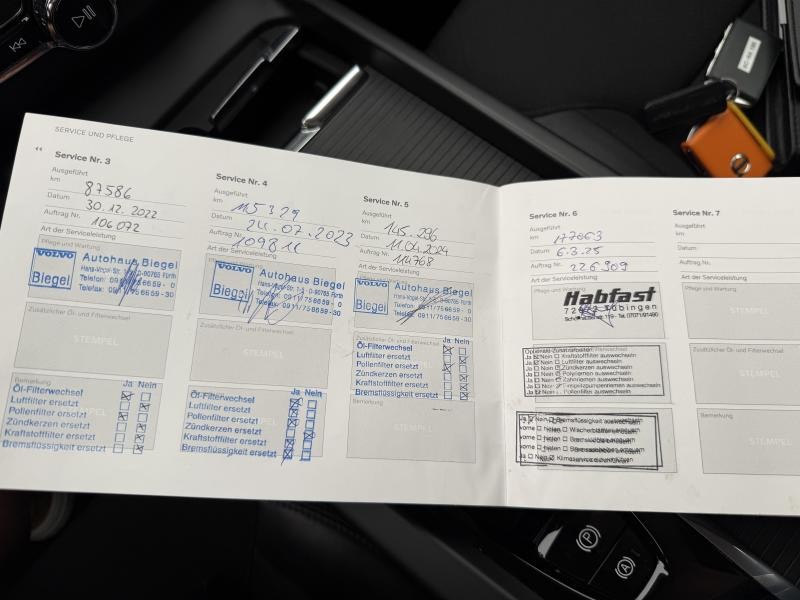 SERVICE UND PFLEGE
Service Nr. 3
Ausgeführt
km 87586
Datum 30.12.2022
Auftrag Nr. 106072
Art der Serviceleistung
Pflege und Wartung
VOLVO
Biegel
Autohaus Biegel
Hans-Vogel-Str. D-90765 Fürth
Telefon: 0911/756659-0
Telefax: 0911/756659-30
Zusätzlicher Öl- und Filterwechsel
STEMPEL
Bemerkung
Ja Nein
Öl-Filterwechsel
Luftfilter ersetzt
Pollenfilter ersetzt
Zündkerzen ersetzt
Kraftstoffilter ersetzt
Bremsflüssigkeit ersetzt
Service Nr. 4
Ausgeführt
km 115329
Datum 24.07.2023
Auftrag Nr.
Art der Serviceleistung
VOLVO
Biegel
Autohaus Biegel
Hans-Vogel-Str. D-90765 Fürth
Telefon: 0911/756659-0
Telefax: 0911/756659-30
Zusätzlicher Öl- und Filterwechsel
STEMPEL
Ja Nein
Öl-Filterwechsel
Luftfilter ersetzt
Pollenfilter ersetzt
Zündkerzen ersetzt
Kraftstoffilter ersetzt
Bremsflüssigkeit ersetzt
Service Nr. 5
Ausgeführt
km 145.296
Datum 11.04.2024
Auftrag Nr. 114768
Art der Serviceleistung
VOLVO
Biegel
Autohaus Biegel
Hans-Vogel-Str. D-90765 Fürth
Telefon: 0911/756659-0
Telefax: 0911/756659-30
Ja Nein
Öl-Filterwechsel
Luftfilter ersetzt
Pollenfilter ersetzt
Zündkerzen ersetzt
Kraftstoffilter ersetzt
Bremsflüssigkeit ersetzt
Bemerkung
STEMPEL
Service Nr. 6
Ausgeführt
km 177063
Datum 6.3.25
Auftrag Nr. 226909
Art der Serviceleistung
Pflege und Wartung
Habfast
Tübingen
Ja Nein Kraftstoffilter auswechseln
Ja Nein Luftfilter auswechseln
Ja Nein Zündkerzen auswechseln
Ja Nein Polyriemen auswechseln
Ja Nein Zahnriemen auswechseln
Ja Nein Pollenfilter auswechseln
Ja Nein Bremsflüssigkeit auswechseln
Ja Nein Klimaservice
Service Nr. 7
Ausgeführt
km
Datum
Auftrag Nr.
Art der Serviceleistung
Pflege und Wartung
STEMPEL
Zusätzlicher Öl- und Filterwechsel
STEMPEL
Bemerkung
STEMPEL
P
A